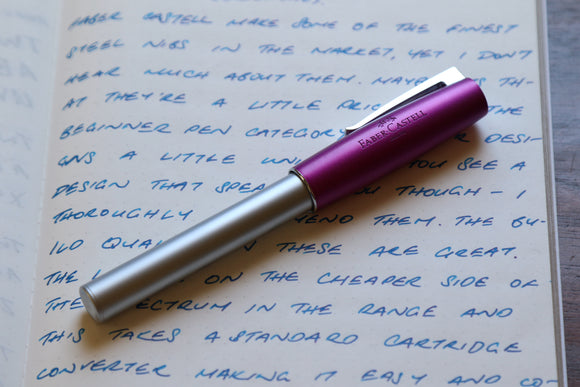 FABER CASTELL MAKE SOME OF THE FINEST
STEEL NIBS IN THE MARKET, YET I DON'T
HEAR MUCH ABOUT THEM. TH-
AT THEY'RE A LITTLE THE
BEGINNER PEN CATEGORY DESI-
GNS A LITTLE YOU SEE A
DESIGN THAT THOUGH - I
THOROUGHLY THEM. THE BU-
ILD THESE ARE GREAT.
THE ON THE CHEAPER SIDE OF
IN THE RANGE AND
THIS TAKES A STANDARD CARTRIDGE
CONVERTER MAKING IT EASY AND CO-
FABER-CASTELL